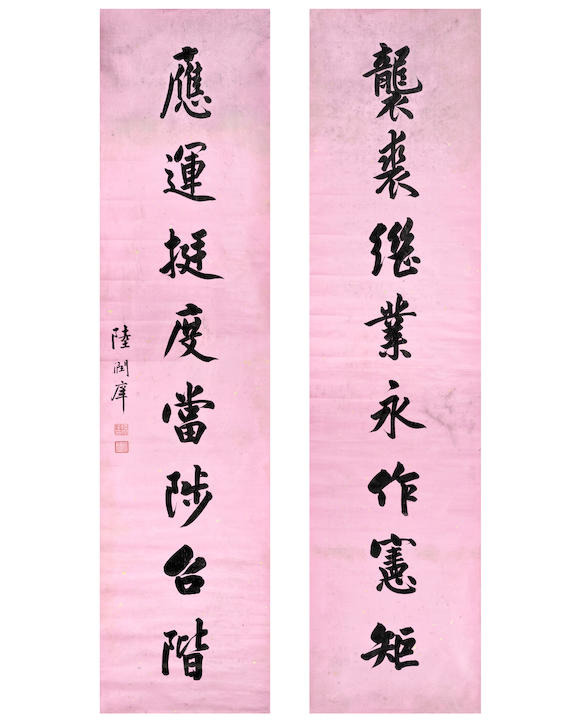 襲裘継業永作憲矩
應運挺度當陟台階
陸潤庠